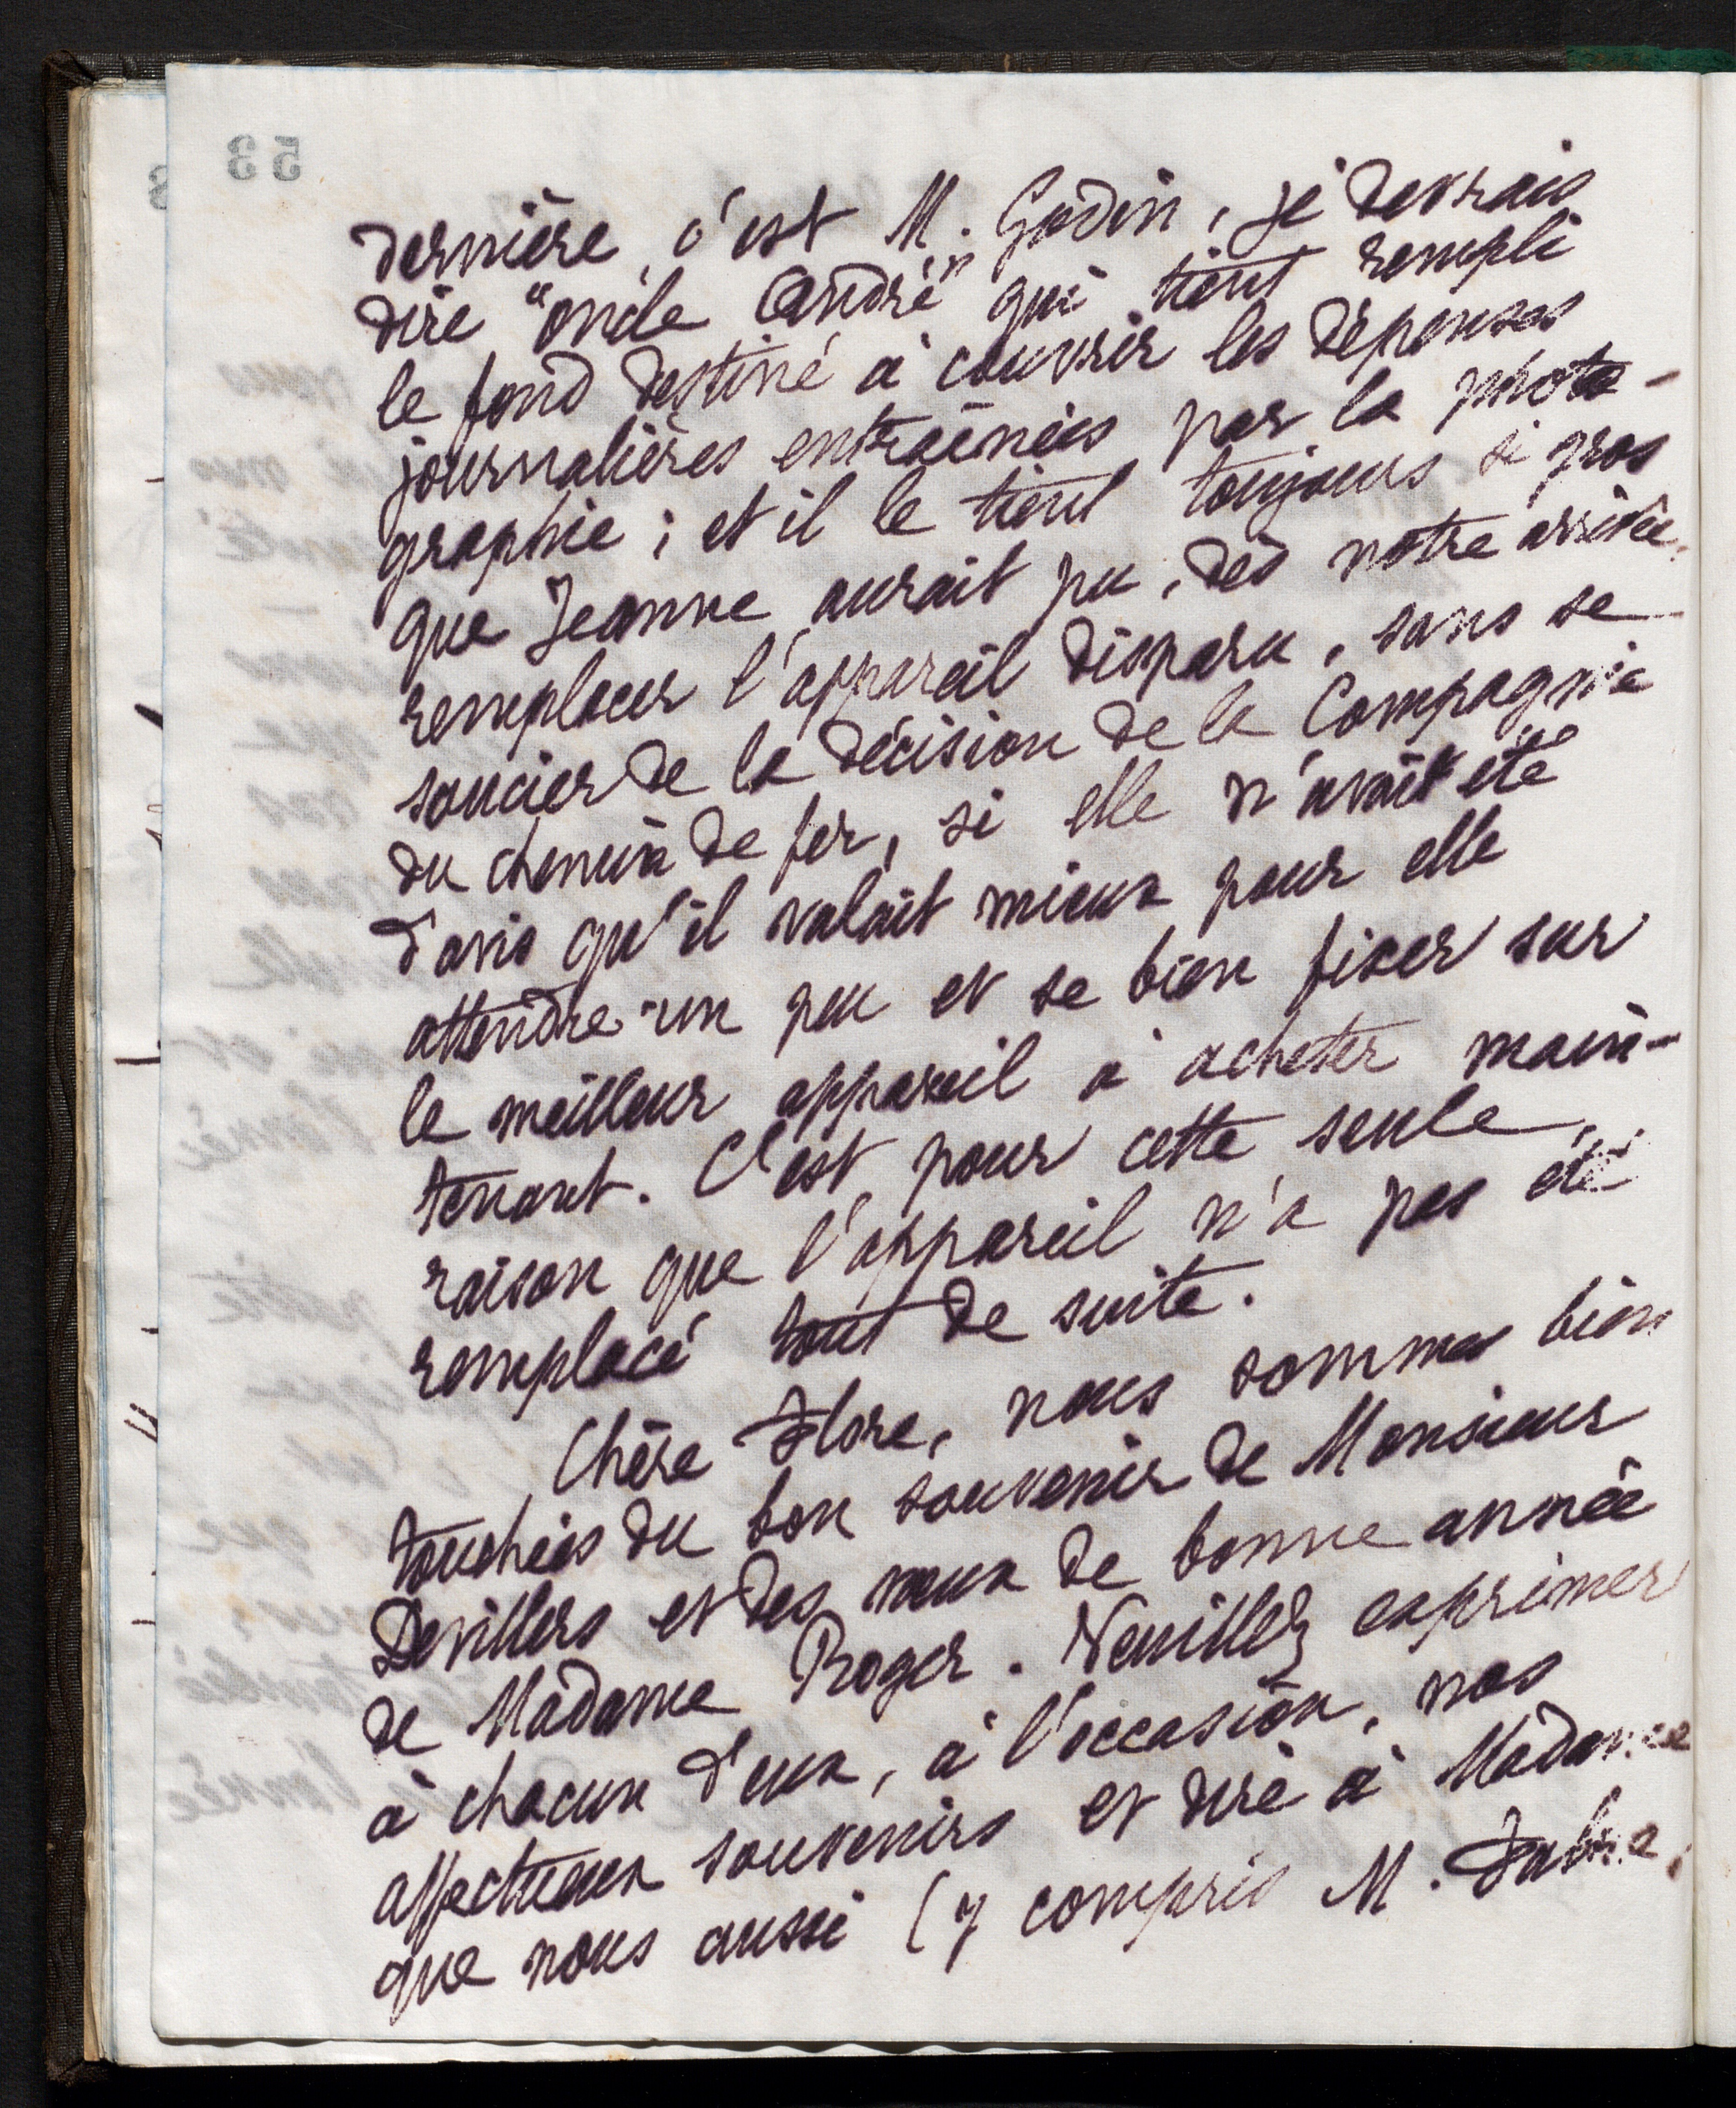 53
dernière, c'est M. Godin, je devrais
dire "oncle André" qui tient rempli
le fond destiné à couvrir les dépenses
journalières entraînées par la photo-
graphie ; et il le tient toujours si gros
que Jeanne aurait pu, dès notre arrivée,
remplacer l'appareil disparu, sans se
soucier de la décision de la Compagnie
du chemin de fer, si elle n'avait été
d'avis qu'il valait mieux pour elle
attendre un peu et se bien fixer sur
le meilleur appareil à acheter main-
tenant. C'est pour cette seule
raison que l'appareil n'a pas été
remplacé tout de suite.
Chère Flore, nous sommes bien
touchées du bon souvenir de Monsieur
Devillers et des vœux de bonne année
de Madame Roger. Veuillez exprimer
à chacun d'eux, à l'occasion, nos
affectueux souvenirs et dire à Madame
que nous aussi (y compris M. Fabre,